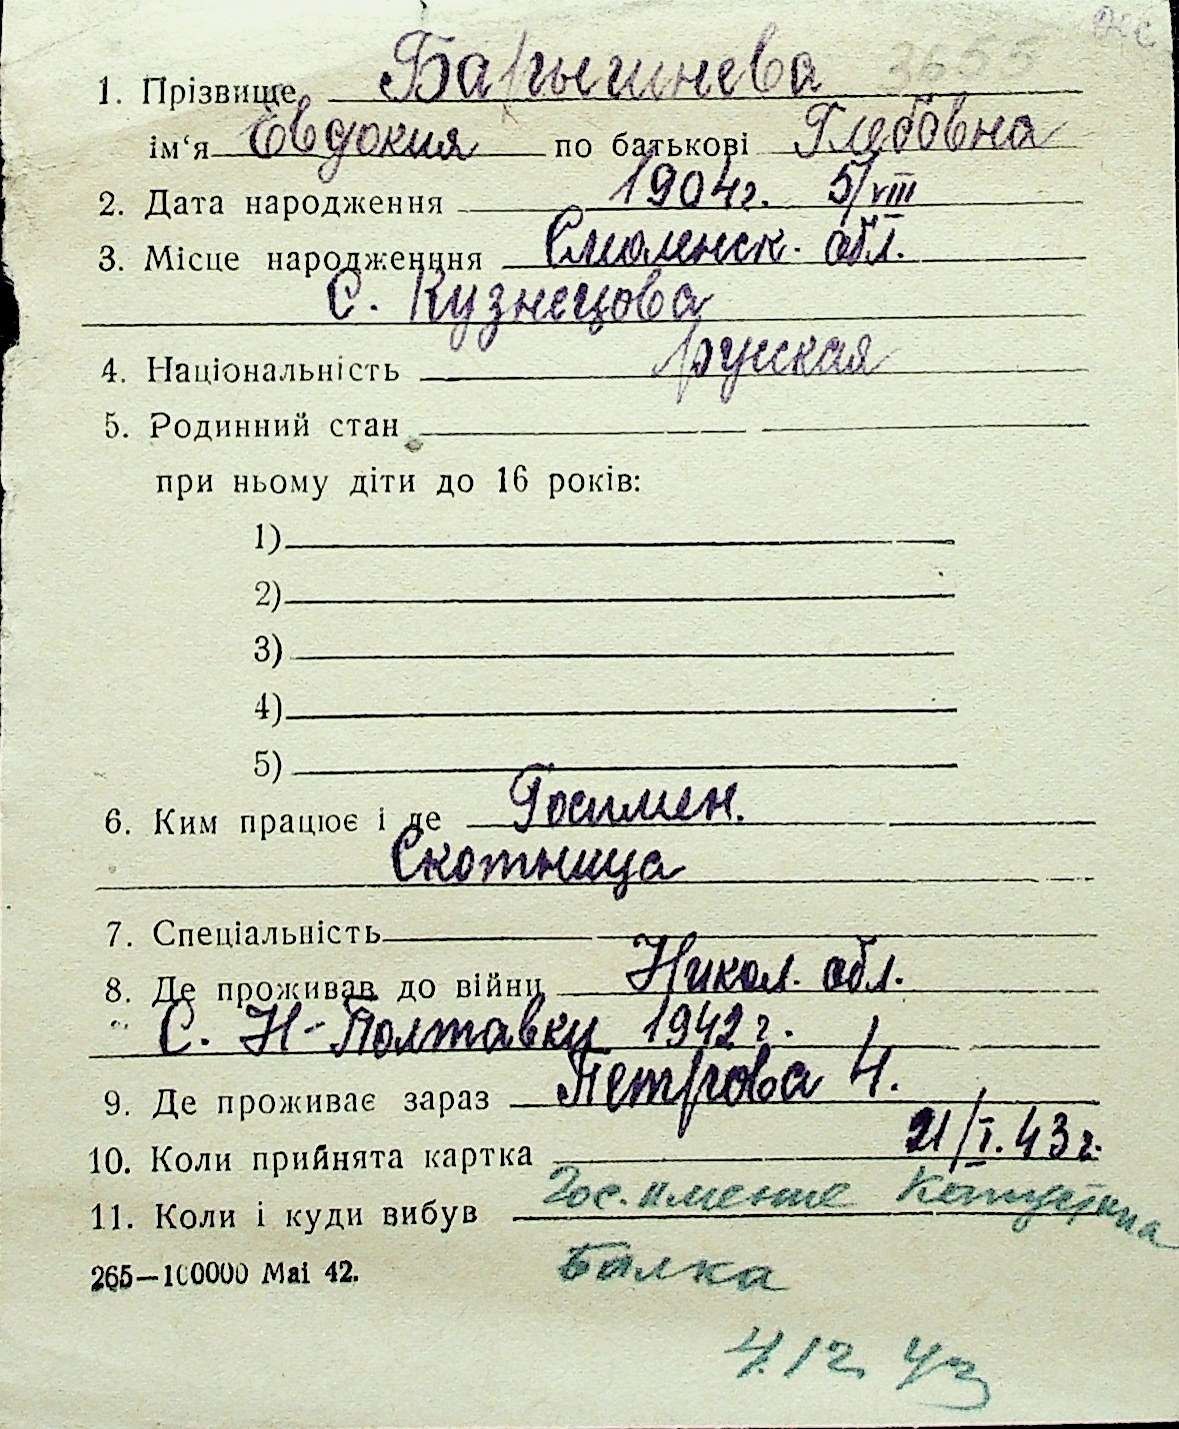 3655
1. Прізвище Барышнева
ім'я Евдокия по батькові Глебовна
2. Дата народження 1904г. 5/VIII
3. Місце народженння Смоленск. обл.
С. Кузнецова
4. Національність русская
5. Родинний стан
при ньому діти до 16 років:
1)
2)
3)
4)
5)
6. Ким працює і де Госимен.
Скотница
7. Спеціальність
8. Де проживав до війни Никол. обл.
С. Н-Полтавки 1942 г.
9. Де проживає зараз Петрова 4.
10. Коли прийнята картка 21/I. 43 г.
11. Коли і куди вибув Гос. имение Капустина
Балка
265—100000 Mai 42.
4.12 43